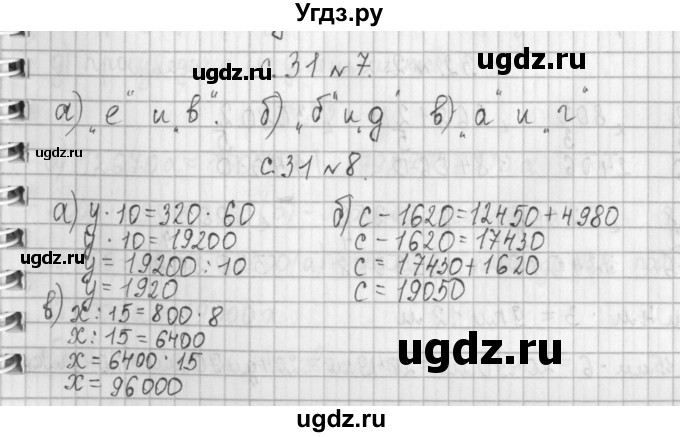 Угдз.ру
с.31 №7.
а) „е" и „в". б) „б" и „д" в) „а" и „г"
с.31 №8.
а) y · 10 = 320 · 60
y · 10 = 19200
y = 19200 : 10
y = 1920
б) c - 1620 = 12450 + 4980
c - 1620 = 17430
c = 17430 + 1620
c = 19050
в) x : 15 = 800 · 8
x : 15 = 6400
x = 6400 · 15
x = 96000
ugdz.ru
ugdz.ru
ugdz.ru
ugdz.ru
ugdz.ru
ugdz.ru
ugdz.ru
ugdz.ru